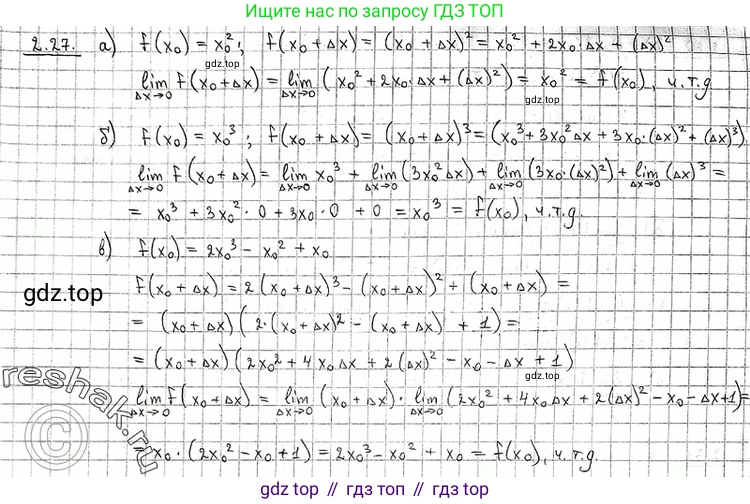 Ищите нас по запросу ГДЗ ТОП
2.27. а) f(x₀) = x₀²; f(x₀ + Δx) = (x₀ + Δx)² = x₀² + 2x₀·Δx + (Δx)²
lim Δx→0 f(x₀+Δx) = lim Δx→0 (x₀² + 2x₀·Δx + (Δx)²) = x₀² = f(x₀), ч.т.д
gdz.top
б) f(x₀) = x₀³; f(x₀ + Δx) = (x₀ + Δx)³ = (x₀³ + 3x₀²Δx + 3x₀·(Δx)² + (Δx)³)
lim Δx→0 f(x₀+Δx) = lim Δx→0 x₀³ + lim Δx→0 (3x₀²Δx) + lim Δx→0 (3x₀·(Δx)²) + lim Δx→0 (Δx)³ =
= x₀³ + 3x₀²·0 + 3x₀·0 + 0 = x₀³ = f(x₀), ч.т.д.
в) f(x₀) = 2x₀³ - x₀² + x₀
gdz.top
f(x₀ + Δx) = 2(x₀ + Δx)³ - (x₀ + Δx)² + (x₀ + Δx) =
= (x₀ + Δx)(2·(x₀ + Δx)² - (x₀ + Δx) + 1) =
= (x₀ + Δx)(2x₀² + 4x₀Δx + 2(Δx)² - x₀ - Δx + 1)
gdz.top
lim Δx→0 f(x₀ + Δx) = lim Δx→0 (x₀ + Δx) · lim Δx→0 (2x₀² + 4x₀Δx + 2(Δx)² - x₀ - Δx + 1) =
= x₀·(2x₀² - x₀ + 1) = 2x₀³ - x₀² + x₀ = f(x₀), ч.т.д.
reshak.ru
©
gdz.top // gdz.top // gdz.top